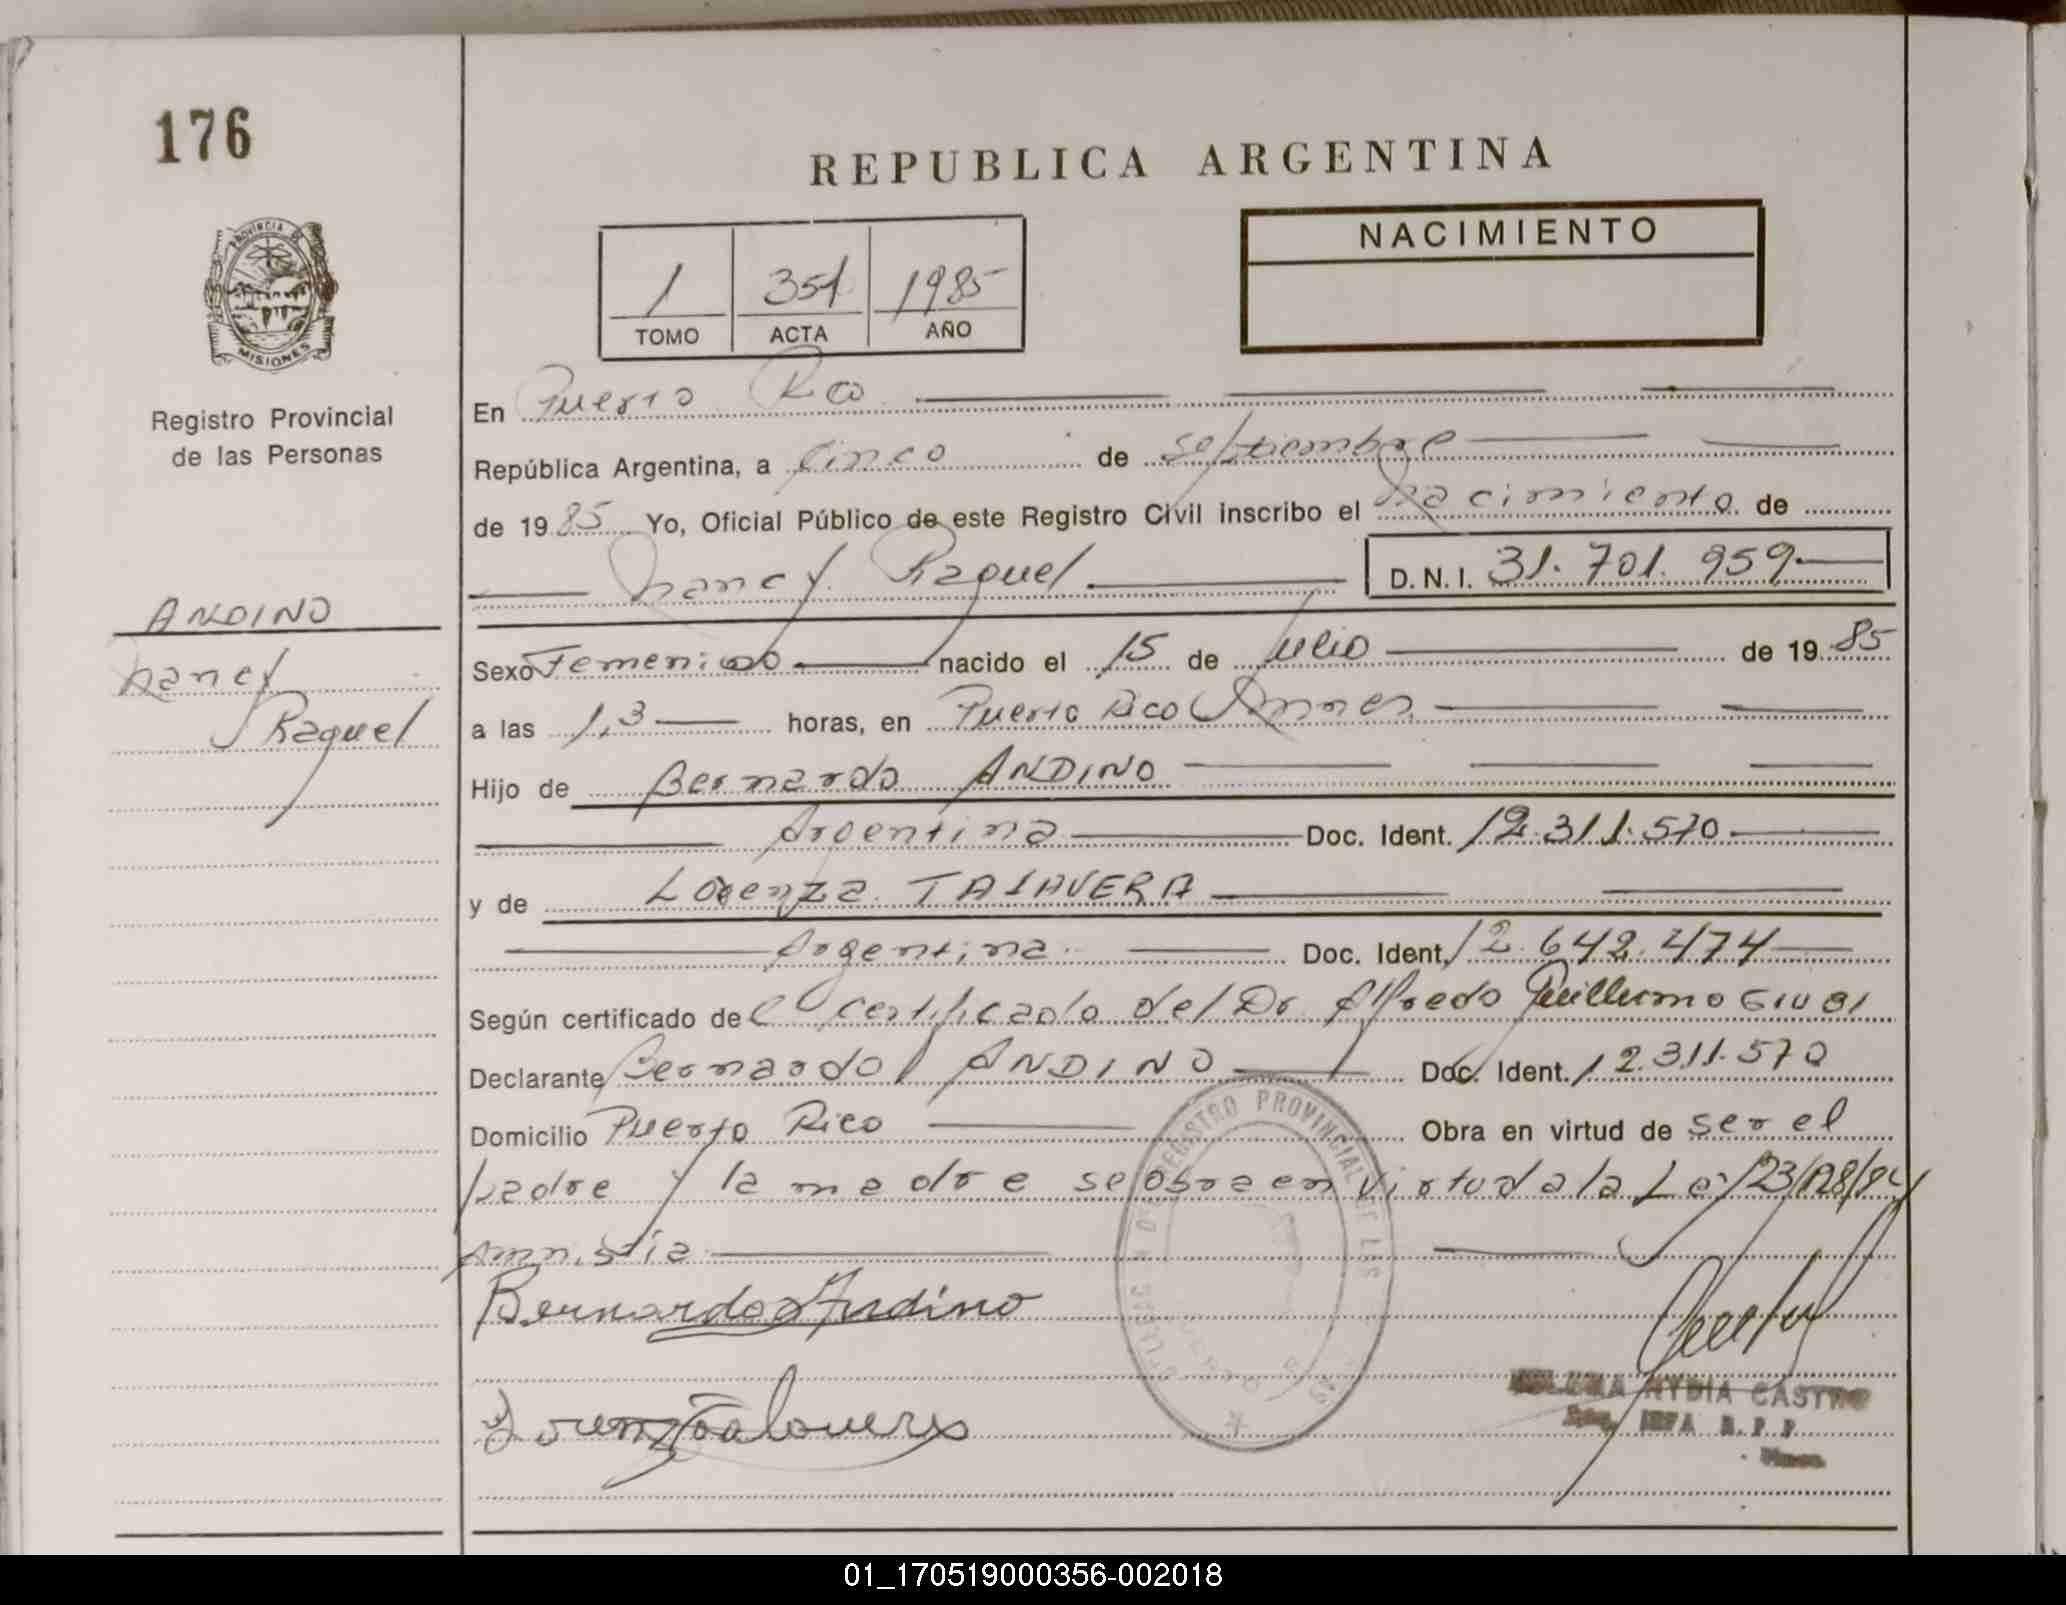 176
REPUBLICA ARGENTINA
PROVINCIA DE
MISIONES
Registro Provincial
de las Personas
NACIMIENTO
1 351 1985
TOMO ACTA AÑO
En Puerto Rico
República Argentina, a cinco de septiembre
de 1985 Yo, Oficial Público de este Registro Civil inscribo el nacimiento de
Nancy Raquel D.N.I. 31.701.959
ANDINO
Nancy
Raquel
Sexo Femenino nacido el 15 de Julio de 1985
a las 1,3 horas, en Puerto Rico
Hijo de Bernardo ANDINO
Argentina Doc. Ident. 12.311.570
y de Lorenza TALAVERA
Argentina Doc. Ident. 12.642.474
Según certificado de el certificado del Dr. Alfredo Guillermo
Declarante Bernardo ANDINO Doc. Ident. 12.311.570
Domicilio Puerto Rico Obra en virtud de ser el
padre y la madre se obra en virtud a la Ley
Amnistía
Bernardo Andino
Lorenza Talavera
REGISTRO PROVINCIAL DE LAS
NYDIA CASTRO
01_170519000356-002018